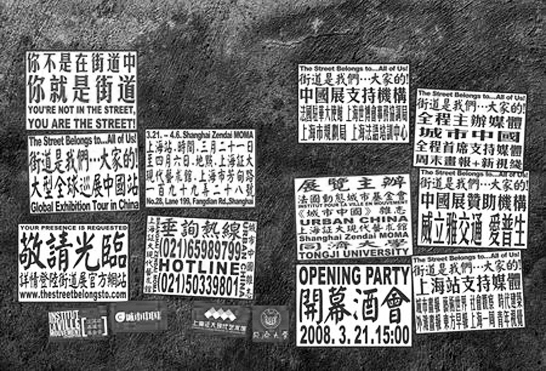 你不是在街道中
你就是街道
YOU'RE NOT IN THE STREET,
YOU ARE THE STREET!
The Street Belongs to...All of Us!
街道是我們⋯大家的!
大型全球巡展中國站
Global Exhibition Tour in China
3.21. – 4.6. Shanghai Zendai MOMA
上海站.時間.三月二十一日
至四月六日.地點.上海証大
現代藝術館.上海市芳甸路
一百九十九弄二十八號
No.28, Lane 199, Fangdian Rd.,Shanghai
YOUR PRESENCE IS REQUESTED
敬請光臨
詳情登陸街道展官方網站
www.thestreetbelongsto.com
垂詢熱線
(021)65989799
HOTLINE
(021)50339801
The Street Belongs to...All of Us!
街道是我們⋯大家的!
中國展支持機構
法國駐華大使館 上海世博會事務協調局
上海市規劃局 上海法語培訓中心
展覽主辦
法國動態城市基金會
INSTITUT POUR LA VILLE EN MOUVEMENT
《城市中國》雜志
URBAN CHINA
上海証大現代藝術館
Shanghai Zendai MOMA
同濟大學
TONGJI UNIVERSITY
OPENING PARTY
開幕酒會
2008. 3. 21.15:00
The Street Belongs to...All of Us!
街道是我們⋯大家的!
全程主辦媒體
城市中國
全程首席支持媒體
周末畫報+新視綫
The Street Belongs to...All of Us!
街道是我們⋯大家的!
中國展贊助機構
威立雅交通 愛普生
The Street Belongs to...All of Us!
街道是我們⋯大家的!
上海站支持媒體
外灘畫報 東方早報 上海一周 青年視綫
INSTITUT
VILLE
MOUVEMENT
城市中国
上海证大现代艺术馆
同济大学